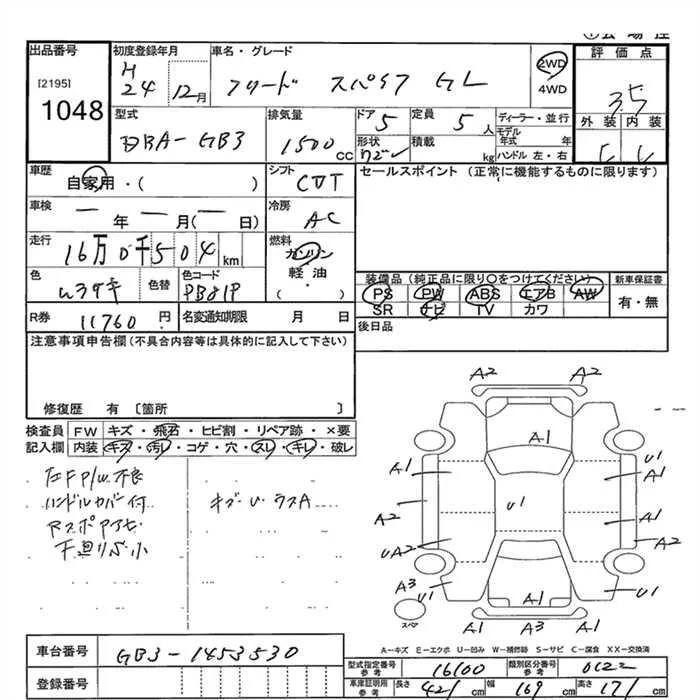 出品番号
[2195]
1048
初度登録年月
H
24 12月
車名・グレード
フリード スパイク GL
2WD
4WD
評価点
3.5
外装 内装
C C
型式
DBA-GB3
排気量
1500 CC
ドア
5
定員
5 人
形状
積載
kg
ディーラー・並行
モデル年式 年
ハンドル 左・右
車歴
自家用・( )
シフト
CVT
セールスポイント (正常に機能するものに限ります)
車検
一 年 一 月(一 日)
冷房
AC
走行
16万0千504 km
燃料
ガソリン
軽油
( )
色
色替
色コード
PB81P
装備品(純正品に限り○をつけてください)
PS PW ABS エアB AW
SR ナビ TV カワ
新車保証書
有・無
R券
11760 円
名変通知期限 月 日
後日品
注意事項申告欄(不具合内容等は具体的に記入して下さい)
修復歴 有〔箇所 〕
検査員
記入欄
FW キズ・飛石・ヒビ割・リペア跡・×要
内装 キズ・汚レ・コゲ・穴・スレ・キレ・破レ
左F P/W不良
ハンドルカバー付
下廻りサビ小
A2 A2
A1
A1 U1
A1
A2 U1 A1
UA2 A2
A3
U1 U1
スペア
A1 A3 A1
A1
A-キズ E-エクボ U-凹み W-補修跡 S-サビ C-腐食 XX-交換済
車台番号
GB3-1453530
登録番号
型式指定番号
参考
16100
類別区分番号
参考
0122
車庫証明用
参考
長さ 421 cm 幅 169 cm 高さ 171 cm